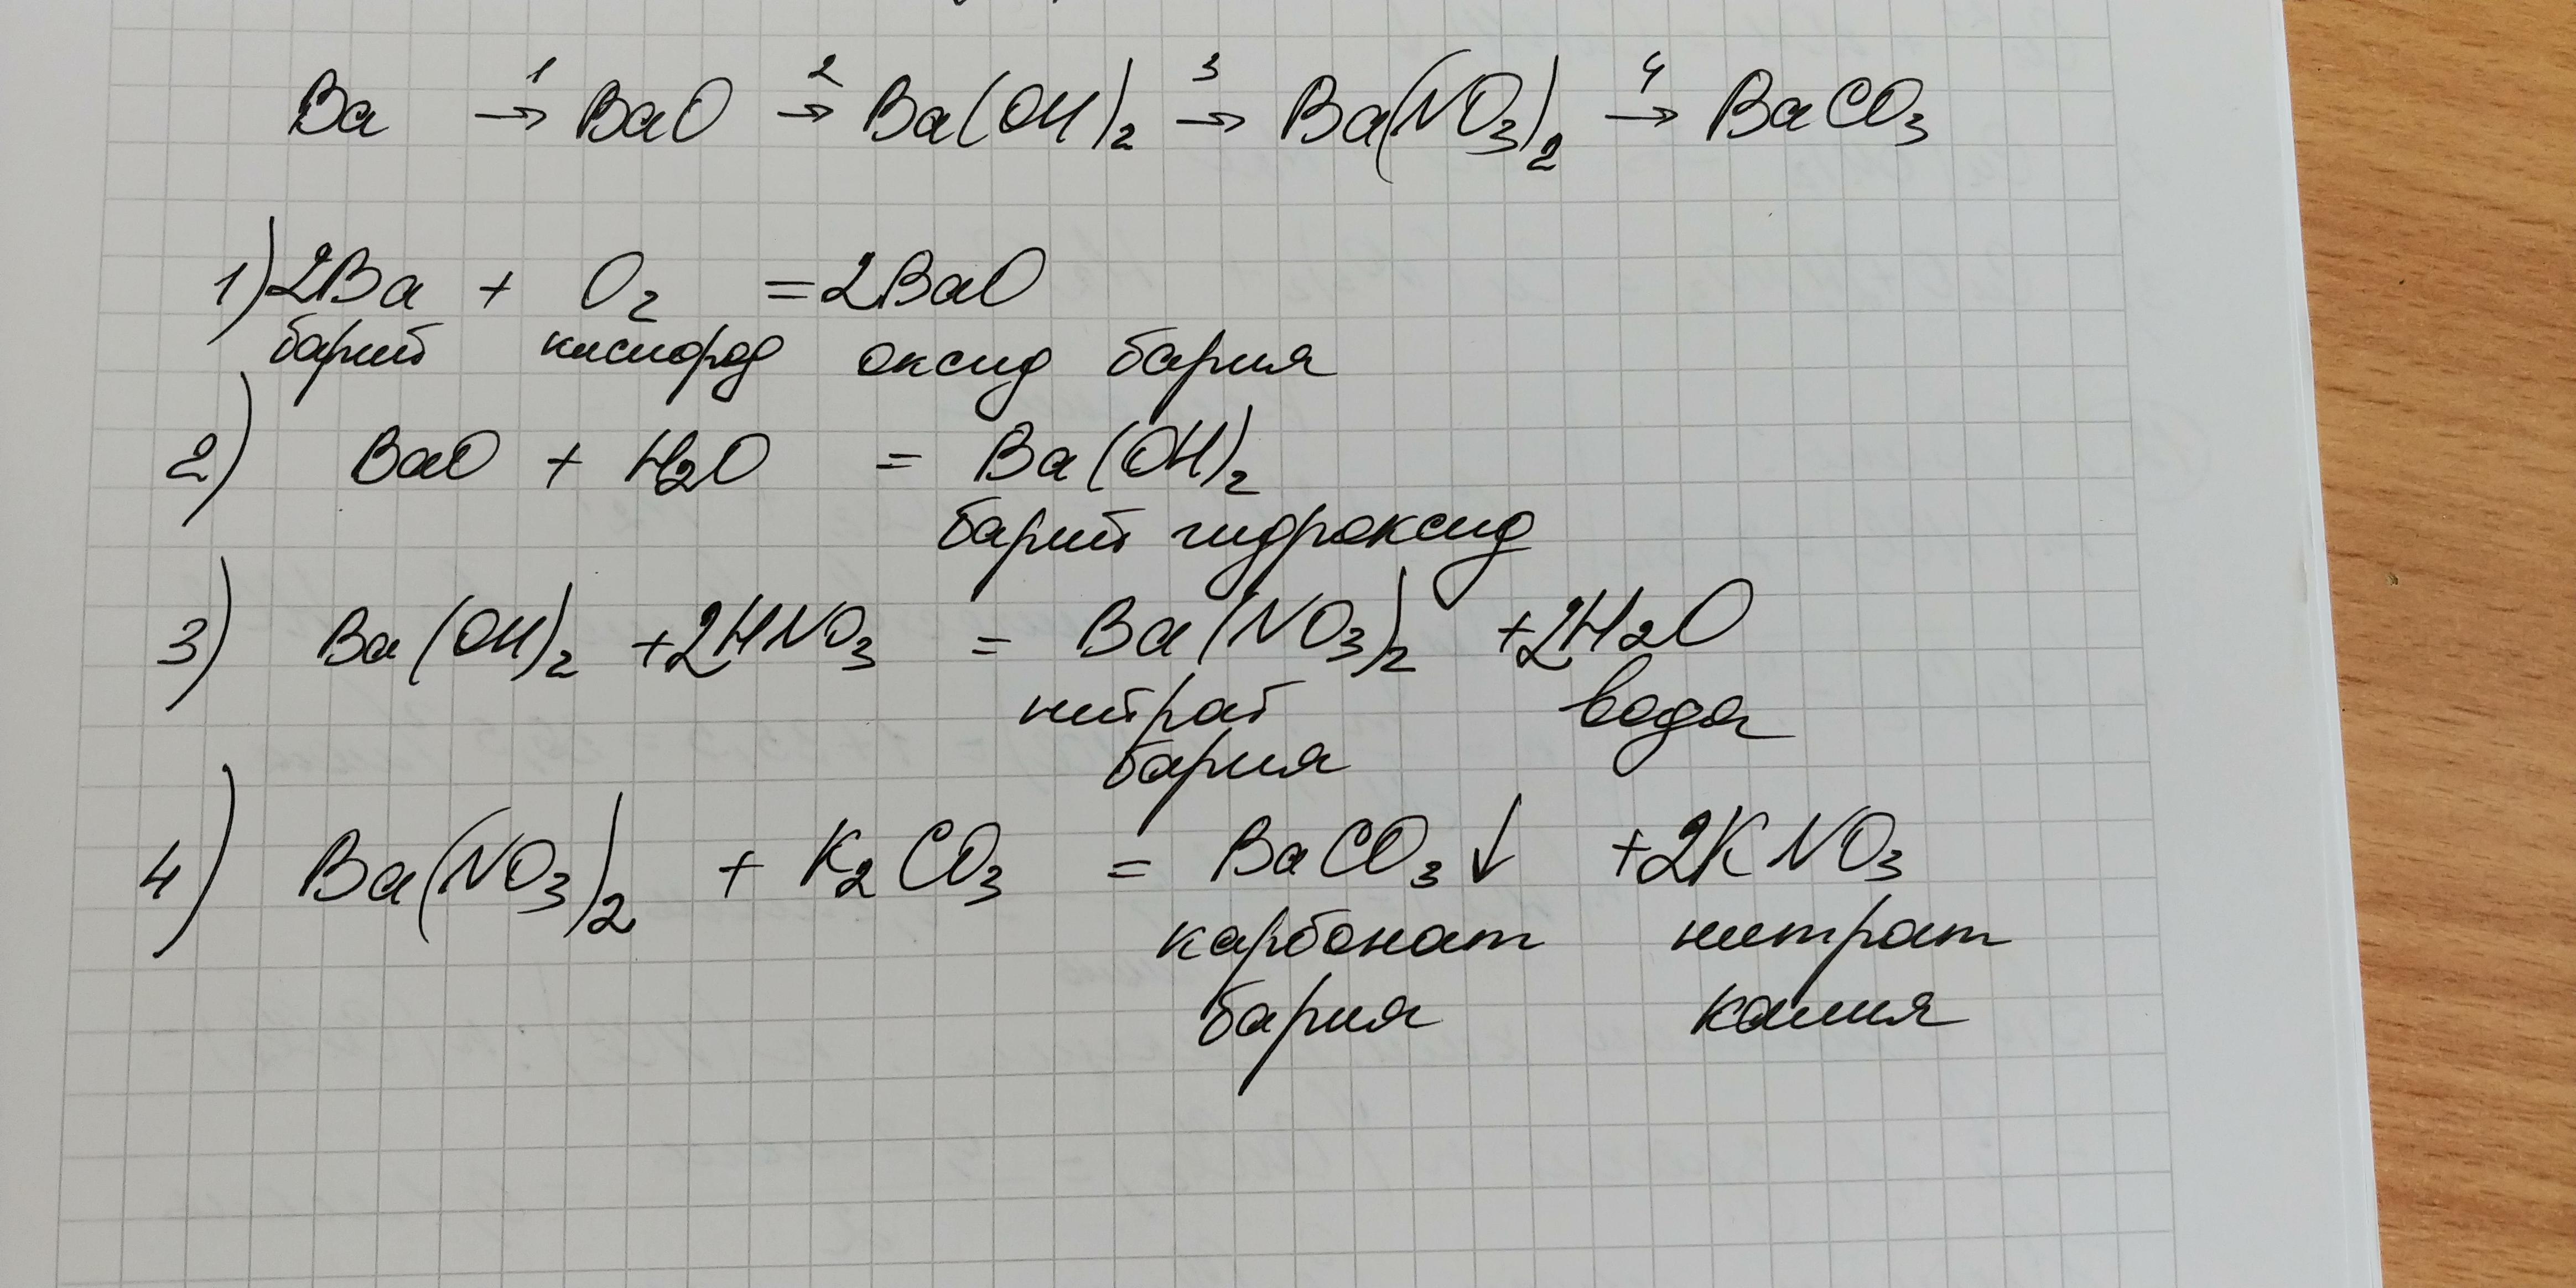 Ba →¹ BaO →² Ba(OH)₂ →³ Ba(NO₃)₂ →⁴ BaCO₃
1) 2Ba + O₂ = 2BaO
барий кислород оксид бария
2) BaO + H₂O = Ba(OH)₂
барий гидроксид
3) Ba(OH)₂ + 2HNO₃ = Ba(NO₃)₂ + 2H₂O
нитрат вода
бария
4) Ba(NO₃)₂ + K₂CO₃ = BaCO₃↓ + 2KNO₃
карбонат нитрат
бария калия